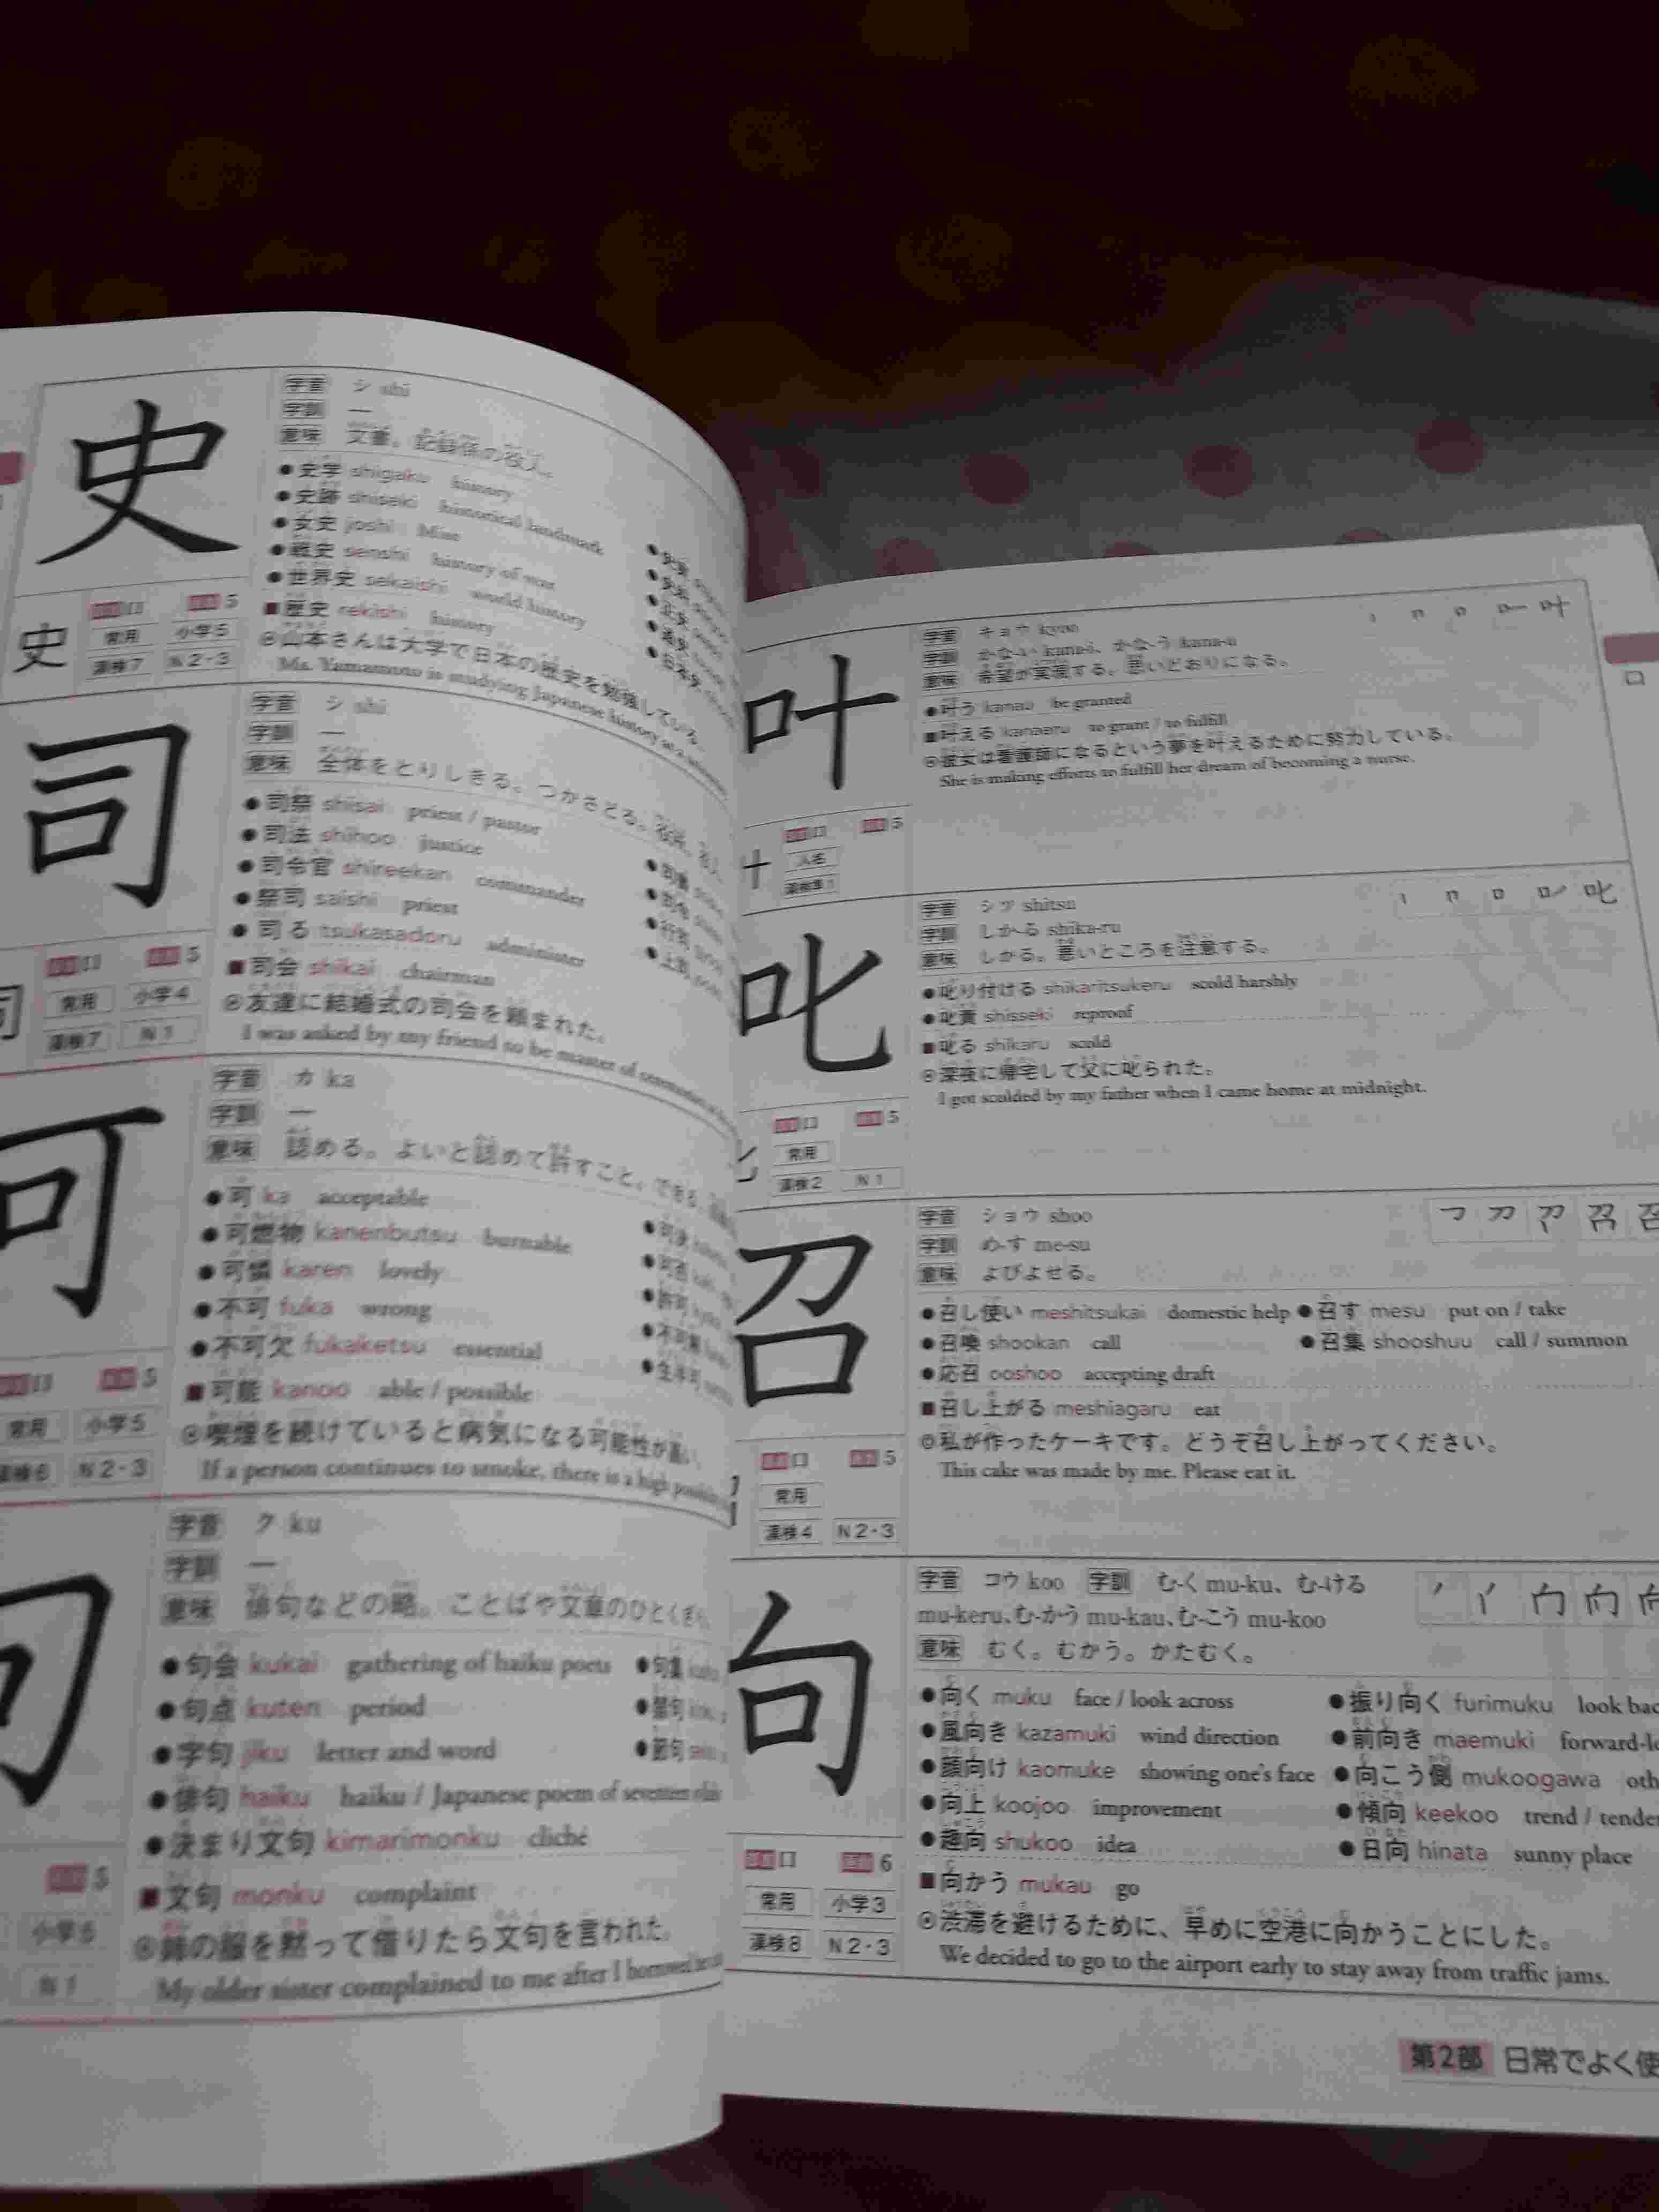 史
字音 シ shi
字訓 —
意味 文書。記録係の役人。
●史学 shigaku history
●史跡 shiseki historical landmark
●女史 joshi Miss
●戦史 senshi history of war
●世界史 sekaishi world history
■歴史 rekishi history
山本さんは大学で日本の歴史を勉強している
Ms. Yamamoto is studying Japanese history at a
史
口 5
常用 小学5
漢検7 N2·3
司
字音 シ shi
字訓 —
意味 全体をとりしきる。つかさどる。
●司祭 shisai priest / pastor
●司法 shihoo justice
●司令官 shireekan commander
●祭司 saishi priest
●司る tsukasadoru administer
■司会 shikai chairman
友達に結婚式の司会を頼まれた。
I was asked by my friend to be master of
口 5
常用 小学4
漢検7 N1
可
字音 カ ka
字訓 —
意味 認める。よいと認めて許すこと。できる
●可 ka acceptable
●可燃物 kanenbutsu burnable
●可憐 karen lovely
●不可 fuka wrong
●不可欠 fukaketsu essential
■可能 kanoo able / possible
喫煙を続けていると病気になる可能性が高い
If a person continues to smoke, there is a high
口 5
常用 小学5
漢検6 N2·3
句
字音 ク ku
字訓 —
意味 俳句などの略。ことばや文章のひとくぎり
●句会 kukai gathering of haiku poets ●句集
●句点 kuten period
●字句 jiku letter and word
●俳句 haiku haiku / Japanese poem of seventeen
●決まり文句 kimarimonku cliché
■文句 monku complaint
姉の服を黙って借りたら文句を言われた。
My older sister complained to me after I borrowed
5
小学5
N1
叶
字音 キョウ kyoo
字訓 かな-い kana-i、かな-う kana-u
意味 希望が実現する。思いどおりになる。
●叶う kanau be granted
■叶える kanaeru to grant / to fulfill
彼女は看護師になるという夢を叶えるために努力している。
She is making efforts to fulfill her dream of becoming a nurse.
口 5
人名
漢検準1
口
叱
字音 シツ shitsu
字訓 しか-る shika-ru
意味 しかる。悪いところを注意する。
●叱り付ける shikaritsukeru scold harshly
●叱責 shisseki reproof
■叱る shikaru scold
深夜に帰宅して父に叱られた。
I got scolded by my father when I came home at midnight.
口 5
常用
漢検2 N1
召
字音 ショウ shoo
字訓 め-す me-su
意味 よびよせる。
●召し使い meshitsukai domestic help ●召す mesu put on / take
●召喚 shookan call ●召集 shooshuu call / summon
●応召 ooshoo accepting draft
■召し上がる meshiagaru eat
私が作ったケーキです。どうぞ召し上がってください。
This cake was made by me. Please eat it.
口 5
常用
漢検4 N2·3
向
字音 コウ koo 字訓 む-く mu-ku、む-ける
mu-keru、む-かう mu-kau、む-こう mu-koo
意味 むく。むかう。かたむく。
●向く muku face / look across ●振り向く furimuku look
●風向き kazamuki wind direction ●前向き maemuki
●顔向け kaomuke showing one's face ●向こう側 mukoogawa
●向上 koojoo improvement ●傾向 keekoo trend /
●趣向 shukoo idea ●日向 hinata sunny place
■向かう mukau go
渋滞を避けるために、早めに空港に向かうことにした。
We decided to go to the airport early to stay away from traffic jams.
口 6
常用 小学3
漢検8 N2·3
第2部 日常でよく使